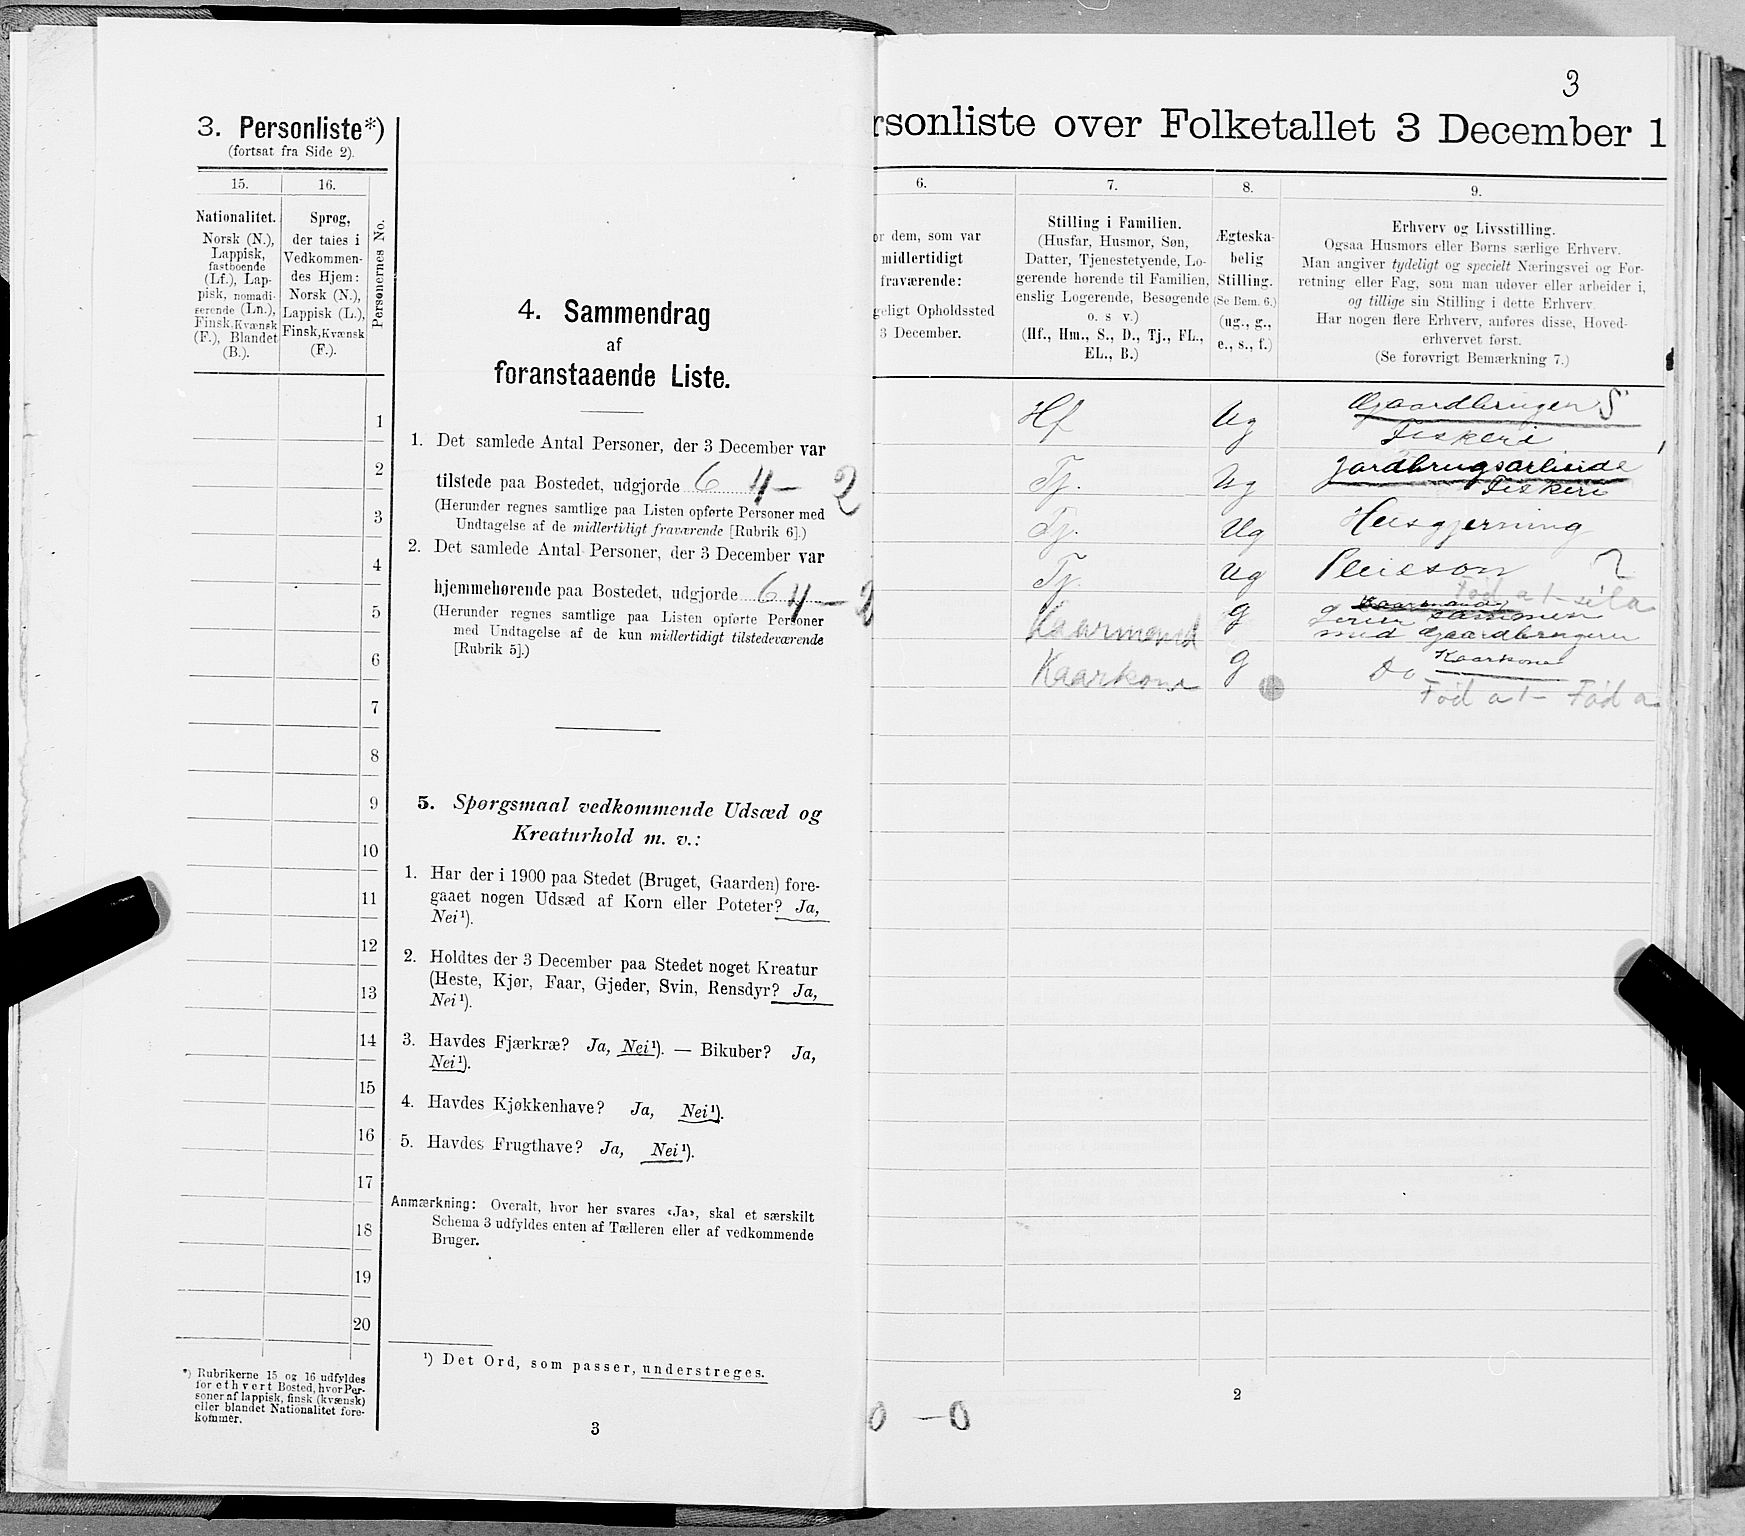 3. Personliste*)
(fortsat fra Side 2).
15.
16.
Nationalitet.
Norsk (N.),
Lappisk,
fastboende
(Lf.), Lap-
pisk, nomadi-
serende (Ln.),
Finsk, Kvænsk
(F.), Blandet
(B.).
Sprog,
der tales i
Vedkommen-
des Hjem:
Norsk (N.),
Lappisk (L.),
Finsk, Kvænsk
(F.).
Personernes No.
1
2
3
4
5
6
7
8
9
10
11
12
13
14
15
16
17
18
19
20
*) Rubrikerne 15 og 16 udfyldes
for ethvert Bosted, hvor Per-
soner af lappisk, finsk (kvænsk)
eller blandet Nationalitet fore-
kommer.
4. Sammendrag
af
foranstaaende Liste.
1. Det samlede Antal Personer, der 3 December var
tilstede paa Bostedet, udgjorde 6 4 – 2
(Herunder regnes samtlige paa Listen opførte Personer med
Undtagelse af de midlertidigt fraværende [Rubrik 6].)
2. Det samlede Antal Personer, der 3 December var
hjemmehørende paa Bostedet, udgjorde 6 4 – 2
(Herunder regnes samtlige paa Listen opførte Personer
med Undtagelse af de kun midlertidigt tilstedeværende
[Rubrik 5].)
5. Spørgsmaal vedkommende Udsæd og
Kreaturhold m. v.:
1. Har der i 1900 paa Stedet (Bruget, Gaarden) fore-
gaaet nogen Udsæd af Korn eller Poteter? Ja,
Nei¹).
2. Holdtes der 3 December paa Stedet noget Kreatur
(Heste, Kjør, Faar, Gjeder, Svin, Rensdyr? Ja,
Nei¹).
3. Havdes Fjærkræ? Ja, Nei¹). — Bikuber? Ja,
Nei¹).
4. Havdes Kjøkkenhave? Ja, Nei¹).
5. Havdes Frugthave? Ja, Nei¹).
Anmærkning: Overalt, hvor her svares «Ja», skal et særskilt
Schema 3 udfyldes enten af Tælleren eller af vedkommende
Bruger.
¹) Det Ord, som passer, understreges.
3
3
rsonliste over Folketallet 3 December 1
6.
7.
8.
9.
or dem, som var
midlertidigt
fraværende:
geligt Opholdssted
3 December.
Stilling i Familien.
(Husfar, Husmor, Søn,
Datter, Tjenestetyende, Lo-
gerende hørende til Familien,
enslig Logerende, Besøgende
o. s v.)
(Hf., Hm., S., D., Tj., FL.,
EL., B.)
Ægteska-
belig
Stilling.
(Se Bem. 6.)
(ug., g.,
e., s., f.)
Erhverv og Livsstilling.
Ogsaa Husmors eller Børns særlige Erhverv.
Man angiver tydeligt og specielt Næringsvei og For-
retning eller Fag, som man udøver eller arbeider i,
og tillige sin Stilling i dette Erhverv.
Har nogen flere Erhverv, anføres disse, Hoved-
erhvervet først.
(Se forøvrigt Bemærkning 7.)
Hf Ug Gaardbruger S
Fiskeri
Tj. Ug Jordbrugsarbeide
Fiskeri
Tj. Ug Husgjerning
Tj. Ug Pleieson
Fød at
Kaarmand g sammen
med Gaardbrugeren
Kaarkone g Do Kaarkone
Fød at – Fød a
0 – 0
2